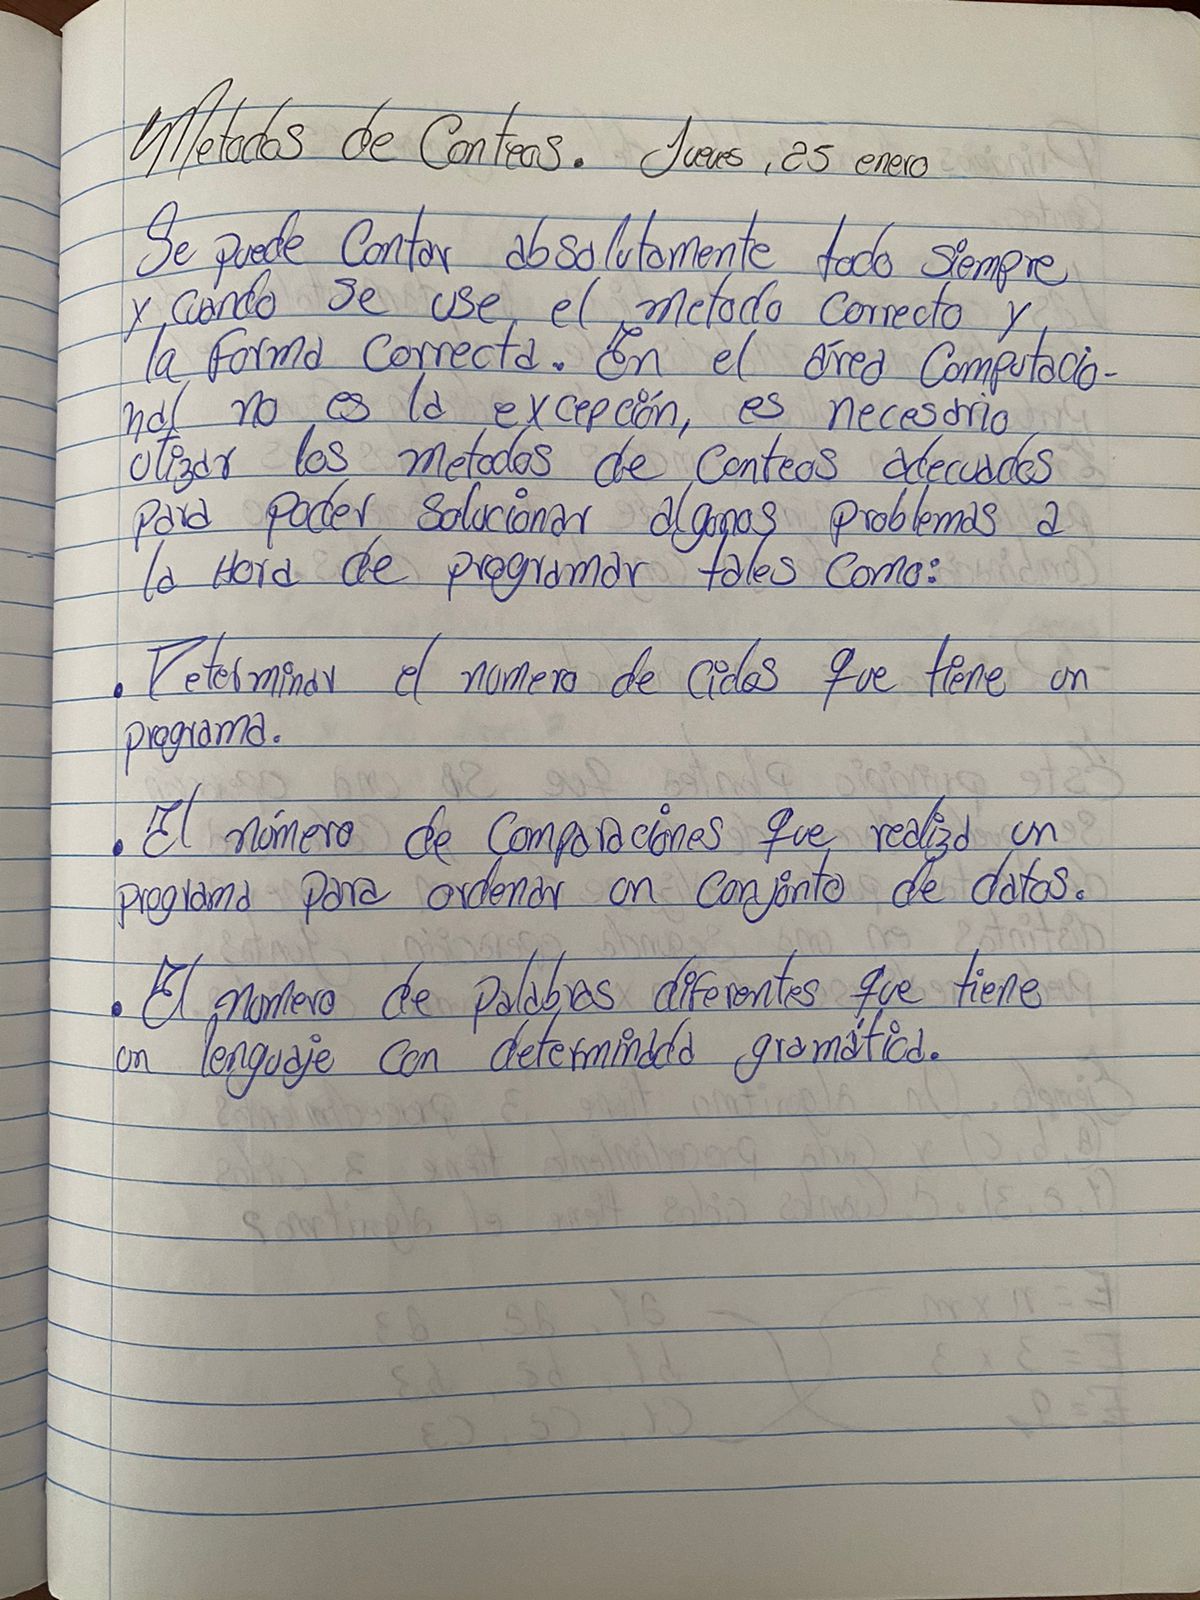 Metodos de Conteos. Jueves, 25 enero
Se puede Contar absolutamente todo siempre
y cuando se use el metodo correcto y
la forma correcta. En el área Computacio-
nal no es la excepción, es necesario
utizar los metodos de conteos adecuados
para poder solucionar algunos problemas a
la Hora de programar tales como:
. Determinar el numero de ciclos que tiene un
programa.
. El número de comparaciones que realiza un
programa para ordenar un conjunto de datos.
. El numero de palabras diferentes que tiene
un lenguaje con determinada gramática.